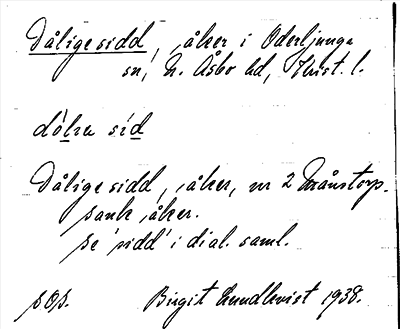 Dåligesidd, åker i Oderljunga
sn, N. Åsbo hd, Krist. l.
Dåligesidd, åker, nr 2 Månstorp.
sank åker.
se 'sidd' i dial. saml.
Birgit Lundkvist 1938.